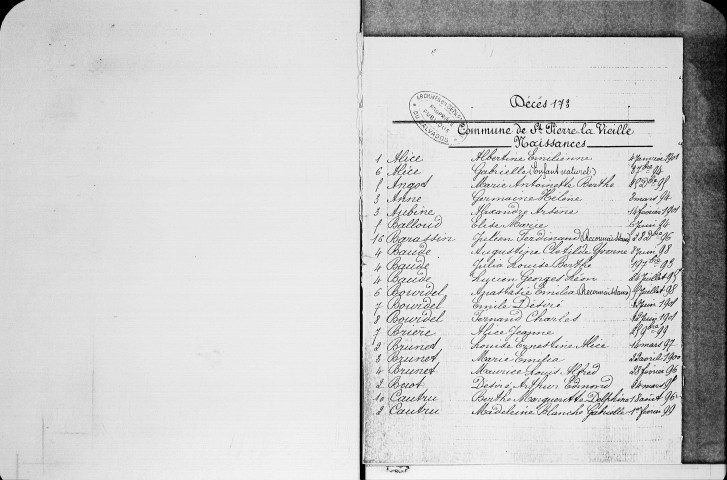 Décés 178
Commune de St Pierre la Vieille
Naissances
1 Alice Albertine Emilienne 4 Janvier 1901
6 Alice Gabrielle (Enfant naturel) 94
1 Angot Marie Antoinette Berthe 98
3 Anne Germaine Hélène mars 94
3 Aubine Alexandre Arsène février 1901
1 Balloud Elise Marie Juin 94
16 Barassin Julien Ferdinand (Reconnaissance) 28 96
4 Baude Augustine Clotilde Yvonne Juin 98
4 Baude Julia Louise Berthe 93
4 Baude Lucien Georges Léon Juillet
6 Bourdel Anastasie Emélia (Reconnaissance) Juillet 98
7 Bourdel Emile Désiré Juin 1901
8 Bourdel Fernand Charles Juin 1901
7 Brière Alice Jeanne 99
2 Brunet Louise Ernestine Alice mars 97
3 Brunet Marie Emélia avril 1900
4 Brunet Maurice Louis Alfred 28 février 96
2 Buot Désiré Arthur Edmond mars
10 Cautru Berthe Marguerite Delphine 18 août 96
2 Cautru Madeleine Blanche Gabrielle 1er février 99